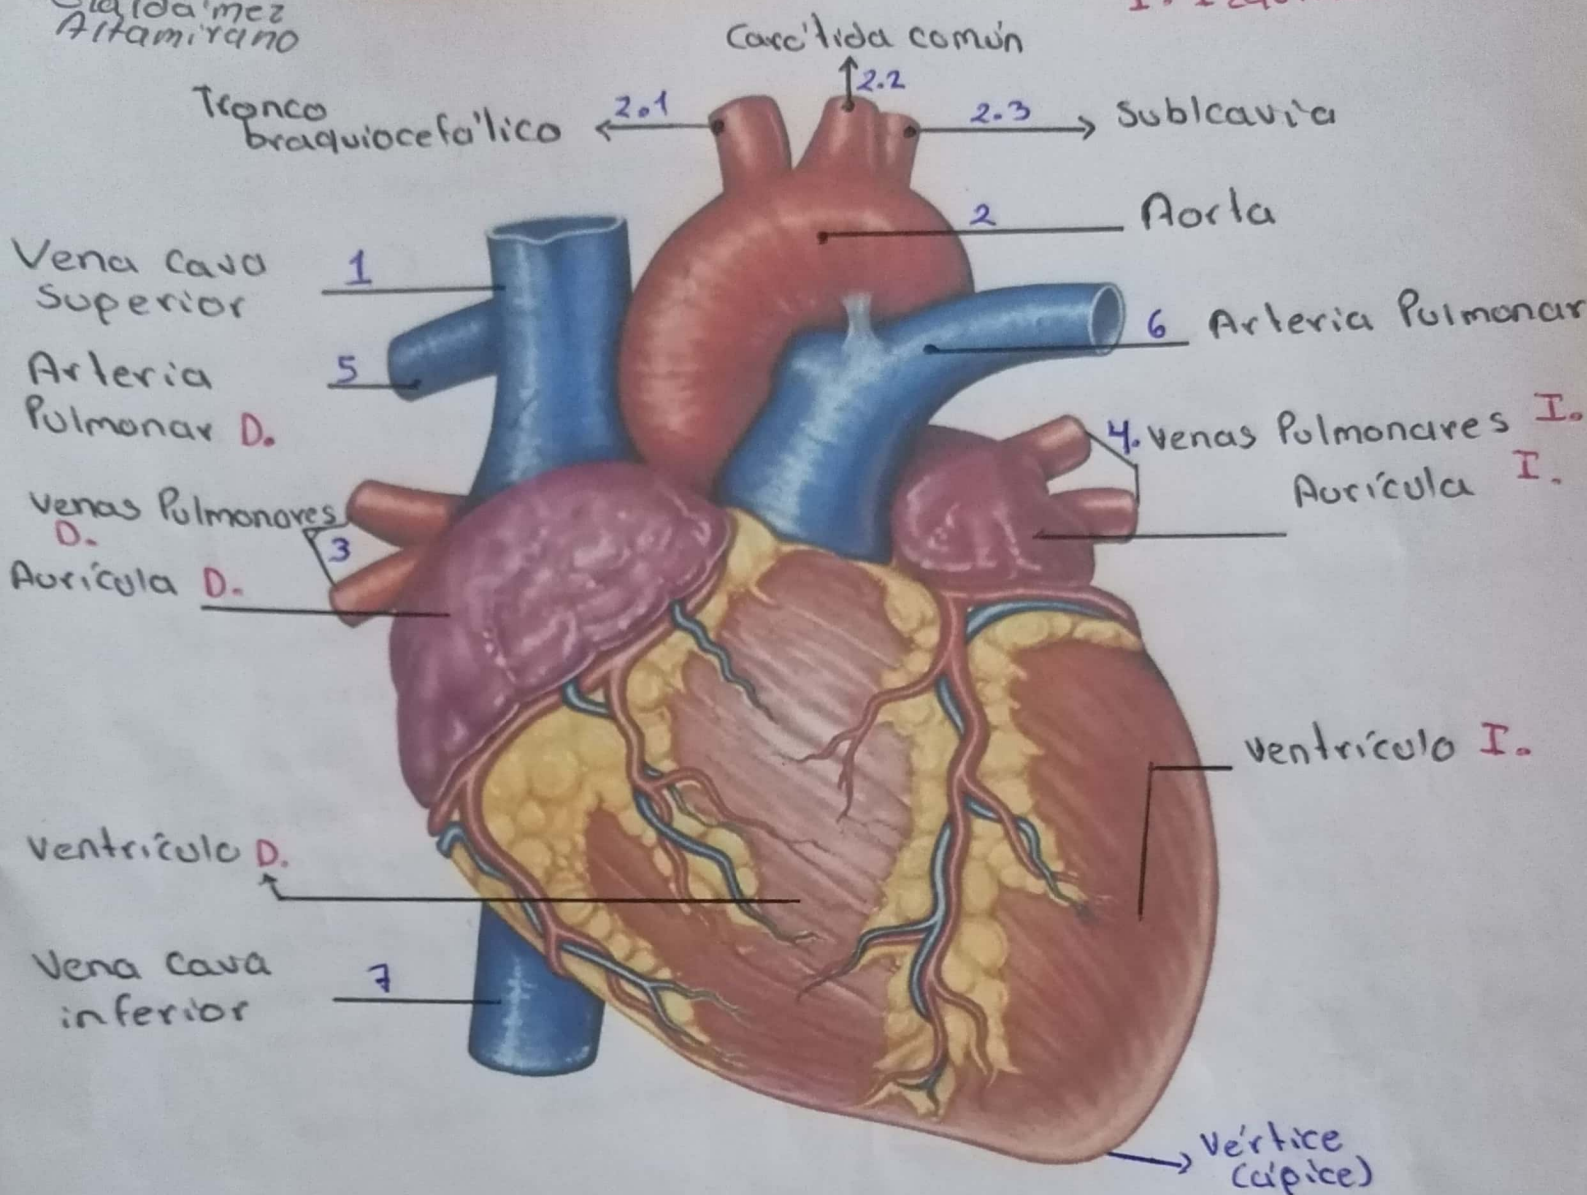 Altamirano
Carótida común
2.2
Tronco
braquiocefálico
2.1
2.3
Sublcavia
2
Aorta
Vena Cava
Superior
1
6
Arteria Pulmonar
Arteria
Pulmonar D.
5
4. Venas Pulmonares I.
Aurícula I.
Venas Pulmonares
D.
3
Aurícula D.
Ventrículo I.
Ventrículo D.
Vena Cava
inferior
7
Vértice
(ápice)